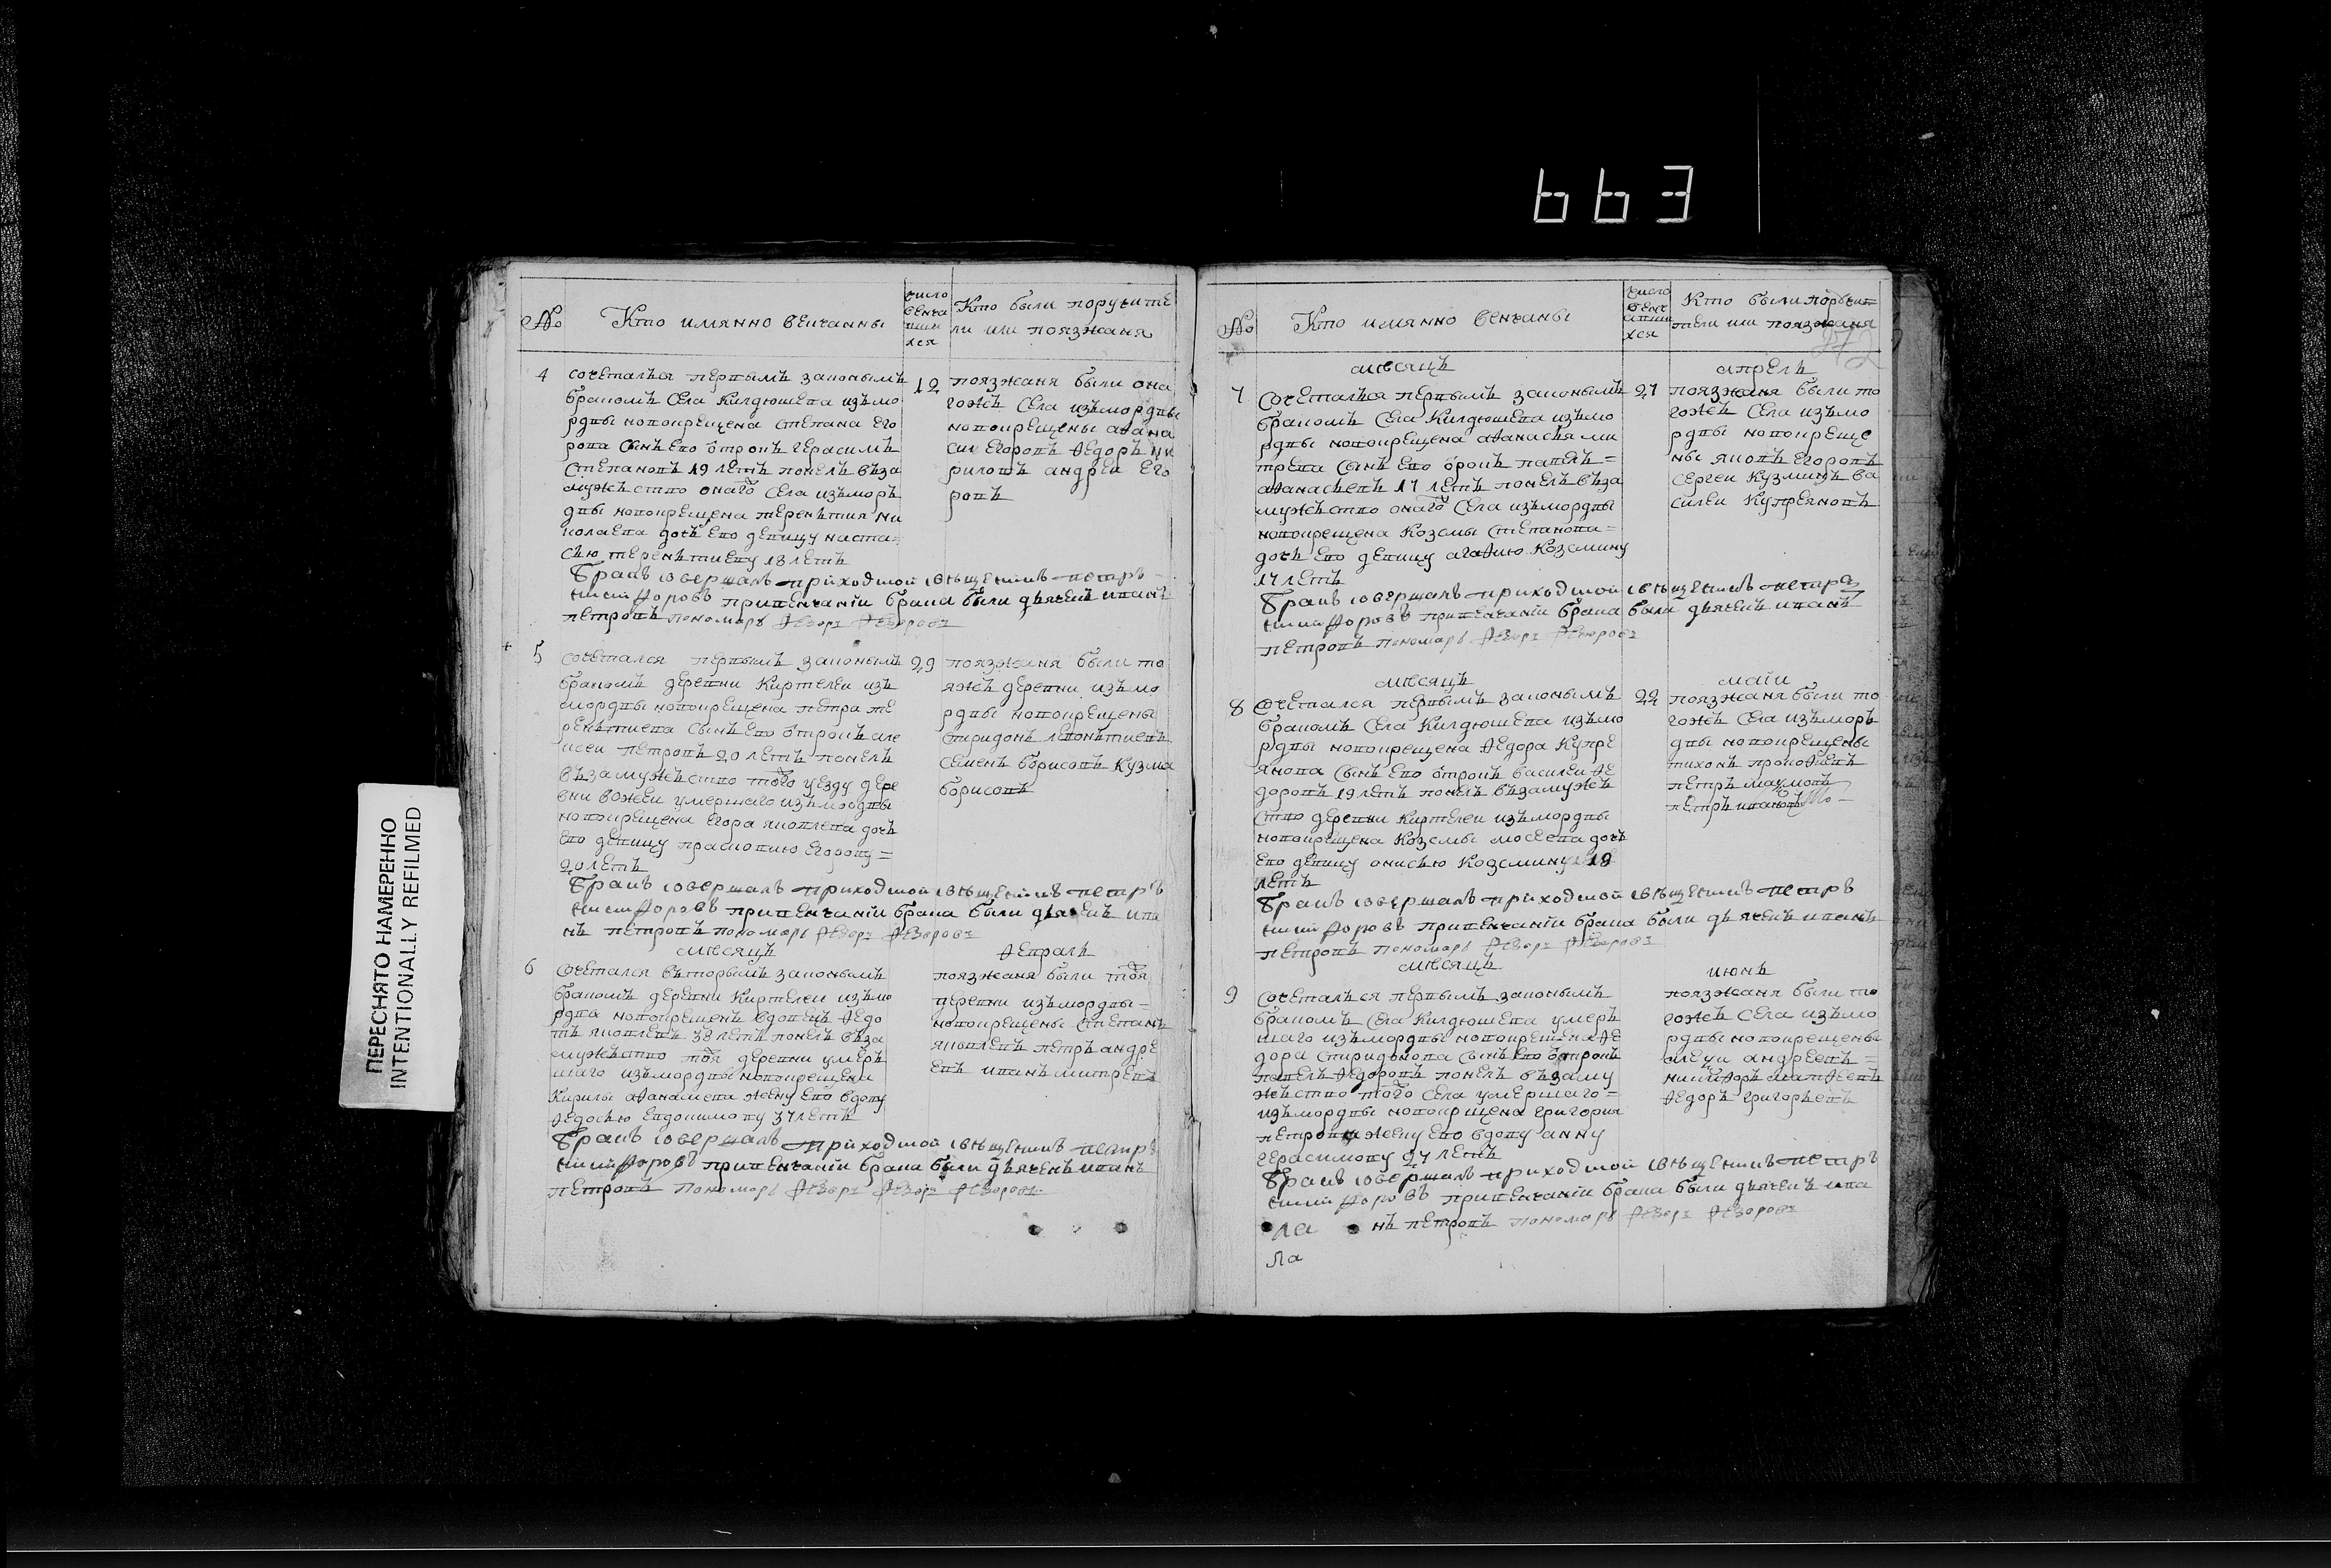 663
ПЕРЕСНЯТО НАМЕРЕННО
INTENTIONALLY REFILMED
№
Кто имянно венчанны
число венча пши хся
Кто были поручите
ли или поязжаня
4
сочеталъся первымъ законымъ
бракомъ села Килдюшева изъмо
рдвы новокрещена степана его
рова сынъ ево отрокъ герасимъ
степановъ 19 летъ понелъ въза
мужъство онаго села изъморъ
двы новокрещена терентия ни
колаева дочъ ево девицу наста=
сью терентиеву 18 летъ
12
поязжаня были она
гожъ села изъмордвы
новокрещены афана
сиѣ егоровъ федоръ ки
риловъ андреи его
ровъ
Бракъ совершалъ приходской священникъ петръ
никифоровъ привенчаніи брака были дьячекъ иванъ
петровъ пономарь Федоръ Федоровъ
5
сочетался первымъ законымъ
бракомъ деревни Киртелеи изъ
мордвы новокрещена петра те
рентиева сынъ ево отрокъ але
ксеи петровъ 20 летъ понелъ
възамужъство того уезду дере
вни вожеи умершаго изъмордвы
новокрещена егора яковлева дочъ
ево девицу прасковию егорову=
20 летъ
29
поязжаня были то
яжъ деревни изъмо
рдвы новокрещены
спиридонъ леонтиевъ
семенъ борисовъ кузма
борисовъ
Бракъ совершалъ приходской священникъ петръ
никифоровъ привенчаніи брака были дьячекъ ива
нъ петровъ пономарь Федоръ Федоровъ
месяцъ февраль
6
сочетался въторымъ законымъ
бракомъ деревни Киртелеи изъмо
рдва новокрещенъ вдовецъ федо
тъ яковлевъ 38 летъ понелъ въза
мужъство тоя деревни умеръ
шаго изъмордвы новокрещена
Кирилы афанасиева жену ево вдову
федосью евдокимову 37 летъ
поязжаня были тоя
деревни изъмордвы=
новокрещены степанъ
яковлевъ петръ андре
евъ иванъ митревъ
Бракъ совершалъ приходской священникъ петръ
никифоровъ привенчаніи брака были дьячекъ иванъ
петровъ пономарь Федоръ Федоръ Федоровъ
№
Кто имянно венчаны
число венч апши хся
Кто были поручи=
тели или поязжаня
месяцъ апрель
7
Сочеталъся первымъ законымъ
бракомъ села Килдюшева изъмо
рдвы новокрещена афанасья ми
трева сынъ ево орокъ павелъ=
афанасьевъ 17 летъ понелъ въза
мужъство онаго села изъмордвы
новокрещена Козмы степанова=
дочъ ево девицу агафию Козмину
17 летъ
27
поязжаня были то
гожъ села изъмо
рдвы новокреще
ны яковъ егоровъ
сергеи Кузминъ ва
силеи Купреяновъ
Бракъ совершалъ приходской священникъ петръ
никифоровъ привенчаніи брака были дьячекъ иванъ
петровъ пономарь Федоръ Федоровъ
месяцъ маіи
8
Сочетался первымъ законымъ
бракомъ села Килдюшева изъмо
рдвы новокрещена федора Купре
янова сынъ ево отрокъ василеи фе
доровъ 19 летъ понелъ възамужъ
ство деревни Киртелеи изъмордвы
новокрещена Козмы мосеева дочъ
ево девицу онисью Козмину 18
летъ
22
поязжаня были то
гожъ села изъморъ
двы новокрещены
тихонъ прокофьевъ
петръ
петръ ивановъ
Бракъ совершалъ приходской священникъ петръ
никифоровъ привенчаніи брака были дьячекъ иванъ
петровъ пономарь Федоръ Федоровъ
месяцъ июнь
9
сочеталъся первымъ законымъ
бракомъ села Килдюшева умеръ
шаго изъмордвы новокрещена фе
дора спиридонова сынъ ево отрокъ
павелъ федоровъ понелъ възаму
жъство того села умершаго=
изъмордвы новокрщена григория
петрова жену ево вдову анну
герасимову 27 летъ
поязжаня были то
гожъ села изъмо
рдвы новокрещены
андреевъ=
никифоръ матфеевъ
федоръ григорьевъ
Бракъ совершалъ приходской священникъ петръ
никифоровъ привенчаніи брака были дьячекъ ива
нъ петровъ пономарь Федоръ Федоровъ
ла
ла